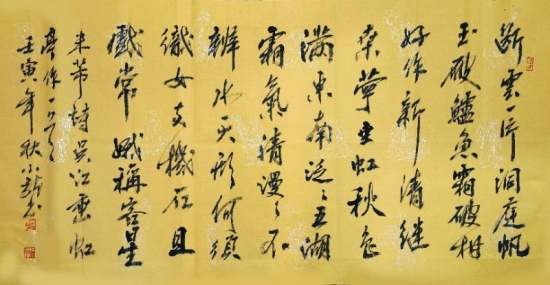 斷雲一片洞庭帆
玉破鱸魚霜破柑
好作新詩繼
桑苧垂虹秋色
滿東南泛々五湖
霜氣清漫々不
辨水天形何須
織女支機石且
戲常娥稱客星
米芾詩吳江垂虹
亭作
壬寅年秋小新書